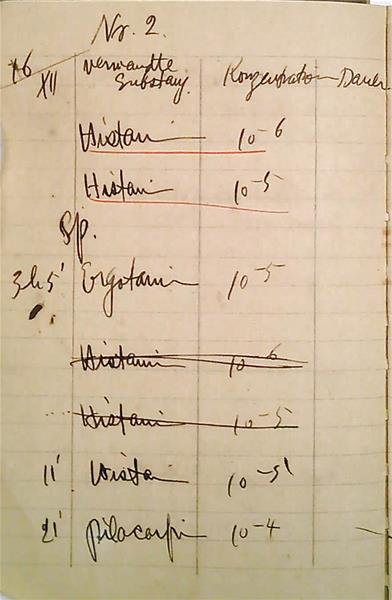 Nr. 2.
16 XII verwandte Substanz. Konzentration Dauer
Histami 10-6
Histami 10-5
Sp.
3h 5' Ergotamin 10-5
Histami 10-6
Histami 10-5
11' Histami 10-5
21' Pilocarpi 10-4